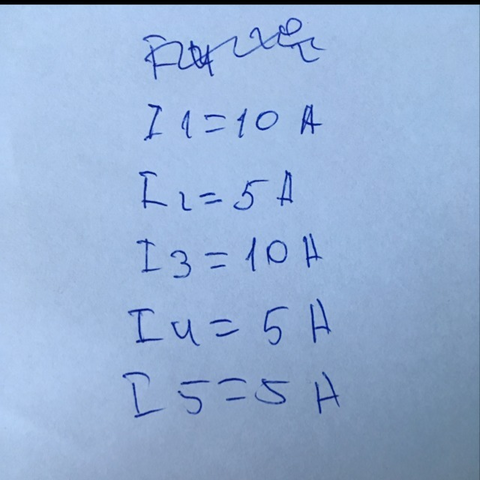 I1=10 A
I2=5 A
I3=10 A
I4=5 A
I5=5 A